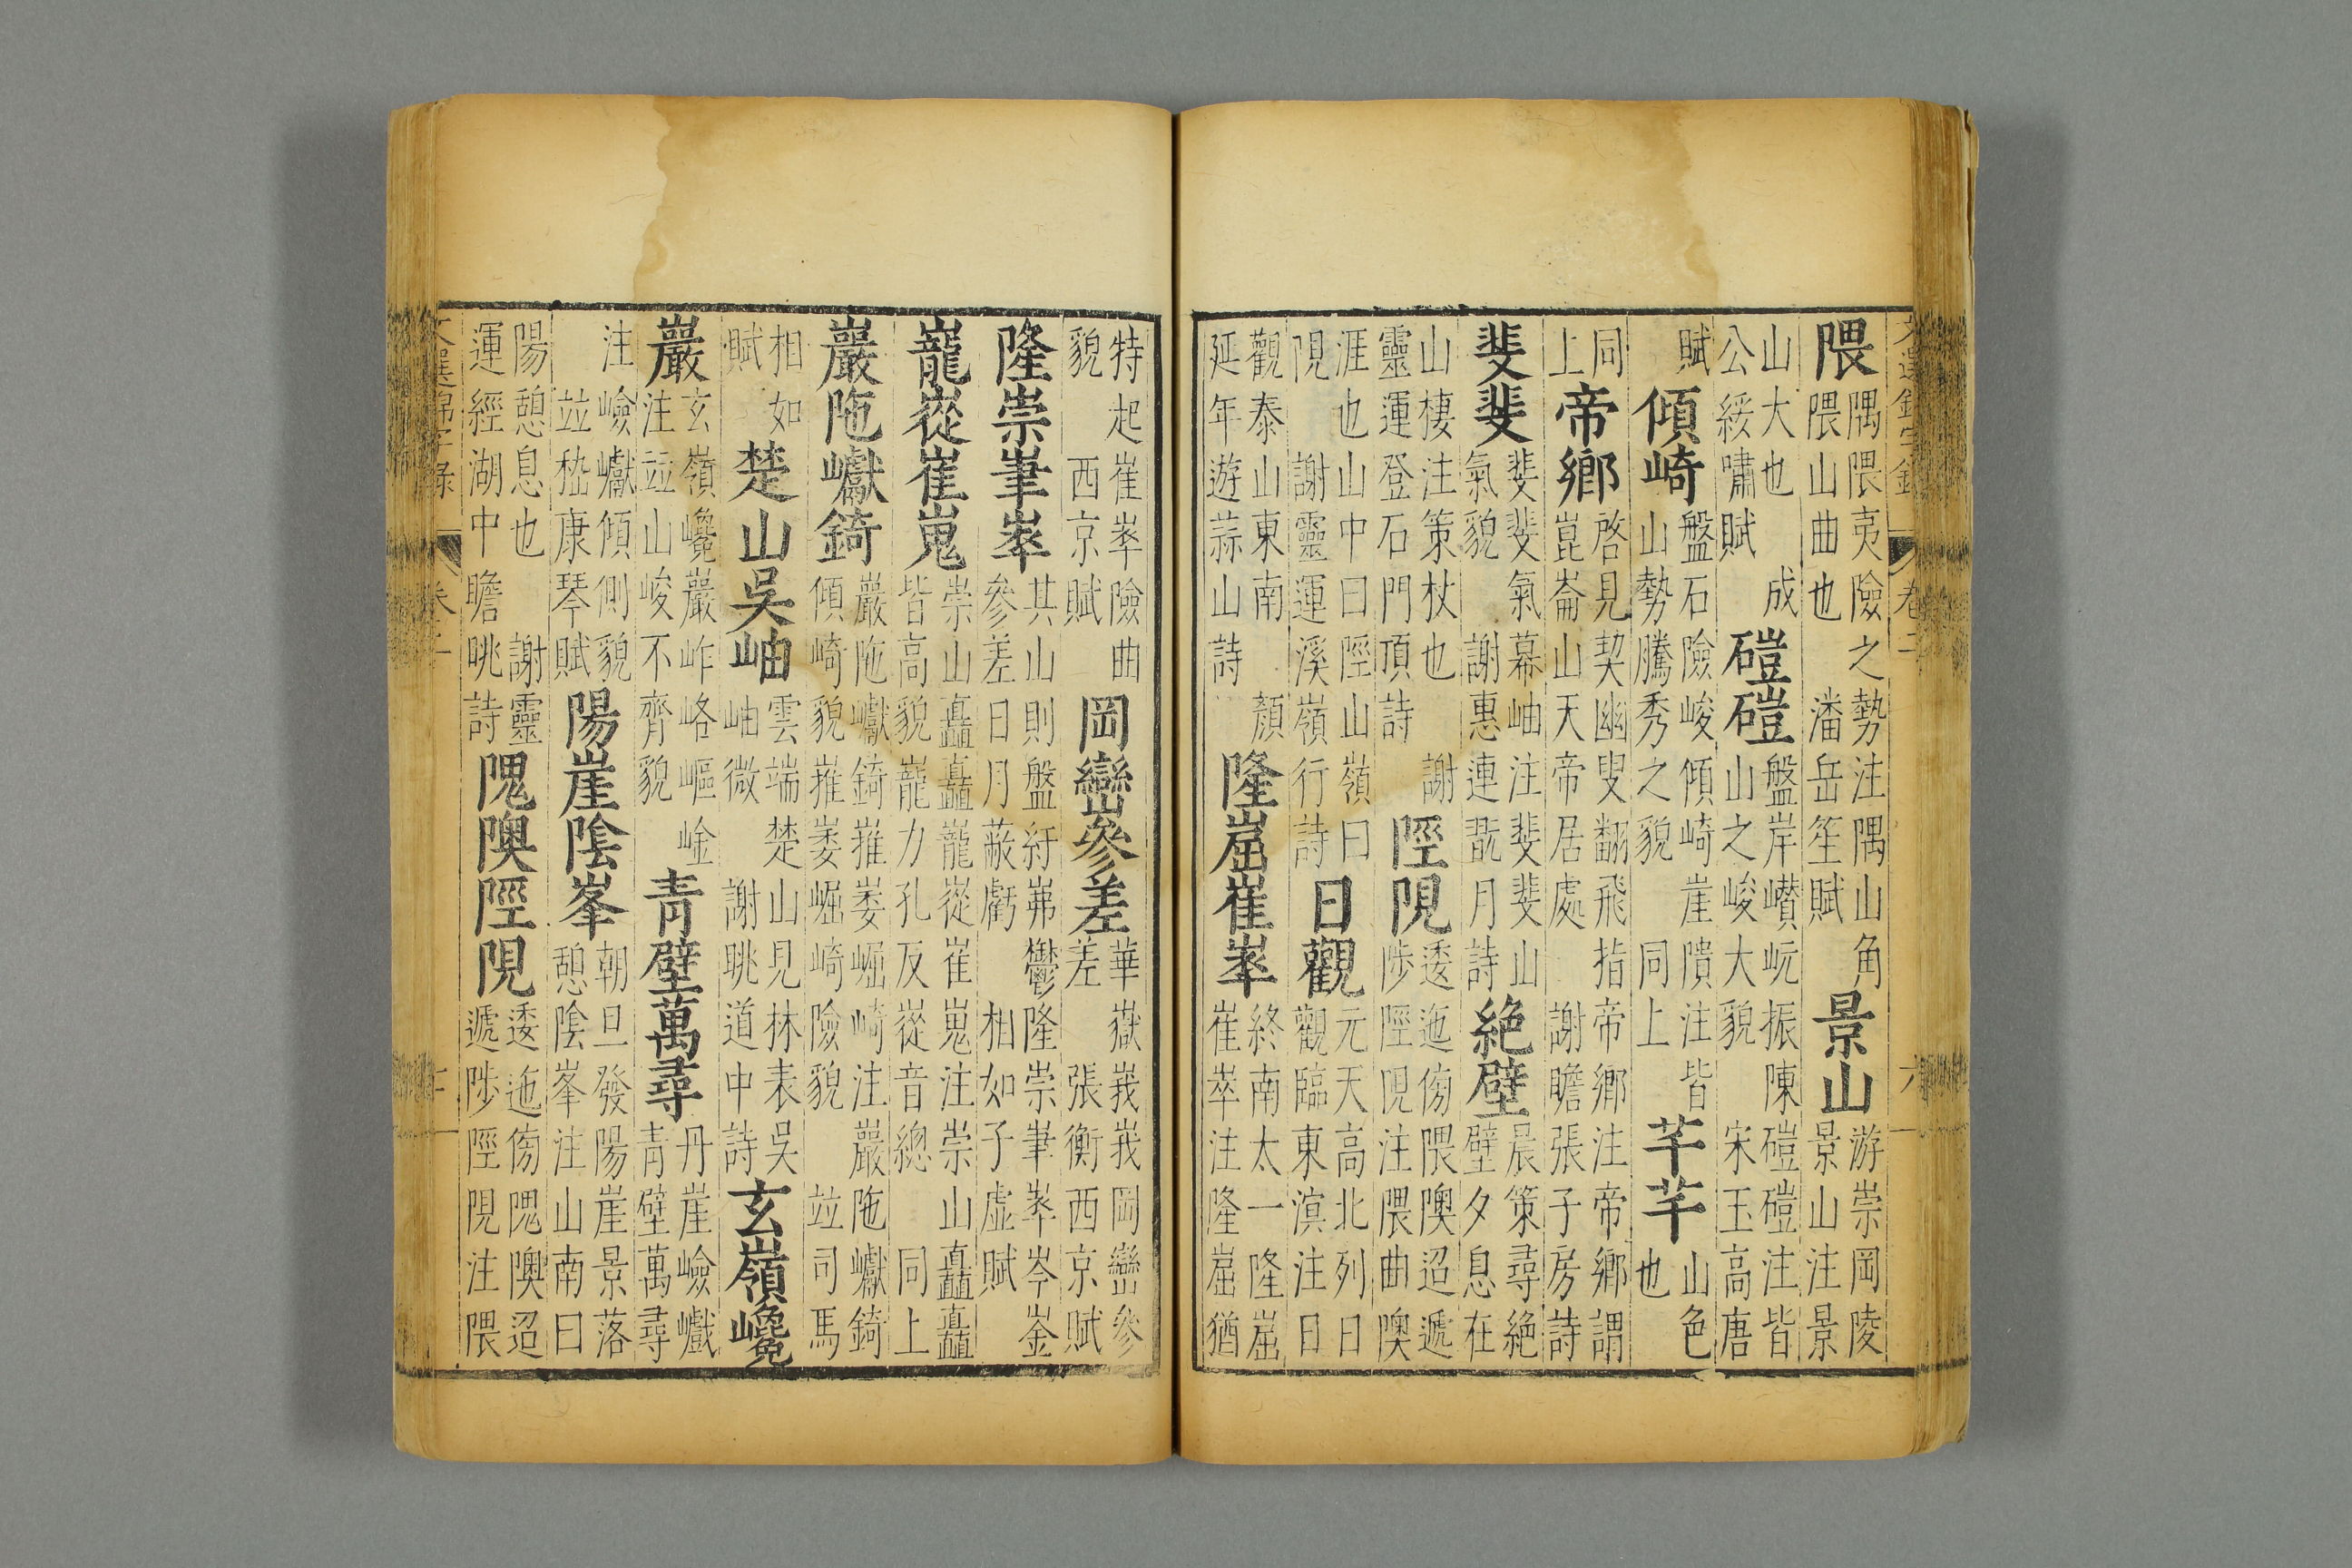 文選錦字錄 卷二 六
隈
隅隈夷險之勢注隅山角
隈山曲也 潘岳笙賦
景山
游崇岡陵
景山注景
山大也 成
公綏嘯賦
磑磑
盤岸巑岏振陳磑磑注皆
山之峻大貌 宋玉高唐
賦
傾崎
盤石險峻傾崎崖隤注皆
山勢騰秀之貌 同上
芊芊
山色
也
同
上
帝鄉
啓見契幽叟翻飛指帝鄉注帝鄉謂
崑崙山天帝居處 謝瞻張子房詩
斐斐
斐斐氣幕岫注斐斐山
氣貌 謝惠連翫月詩
絶壁
晨策尋絶
壁夕息在
山棲注策杖也 謝
靈運登石門頂詩
陘峴
逶迤傍隈隩迢遞
陟陘峴注隈曲隩
涯也山中曰陘山嶺曰
峴 謝靈運溪嶺行詩
日觀
元天高北列日
觀臨東溟注日
觀泰山東南 顏
延年遊蒜山詩
隆崫崔崒
終南太一隆崫
崔崒注隆崫猶
特起崔崒險曲
貌 西京賦
岡巒參差
華嶽峩峩岡巒參
差 張衡西京賦
隆崇嵂崒
其山則盤紆岪鬱隆崇嵂崒岑崟
參差日月蔽虧 相如子虛賦
巃嵷崔嵬
崇山矗矗巃嵷崔嵬注崇山矗矗
皆高貌巃力孔反嵷音總 同上
巖陁巘錡
巖陁巘錡嶊崣崛崎注巖陁巘錡
傾崎貌嶊崣崛崎險貌 竝司馬
相如
賦
楚山吳岫
雲端楚山見林表吳
岫微 謝朓道中詩
玄嶺巉
巖
玄嶺巉巖岞峈嶇崯
注竝山峻不齊貌
青壁萬尋
丹崖嶮巇
青壁萬尋
注嶮巘傾側貌
竝嵇康琴賦
陽崖陰峯
朝旦發陽崖景落
憩陰峯注山南曰
陽憩息也 謝靈
運經湖中瞻眺詩
隗隩陘峴
逶迤傍隗隩迢
遞陟陘峴注隈
文選錦字錄 卷二